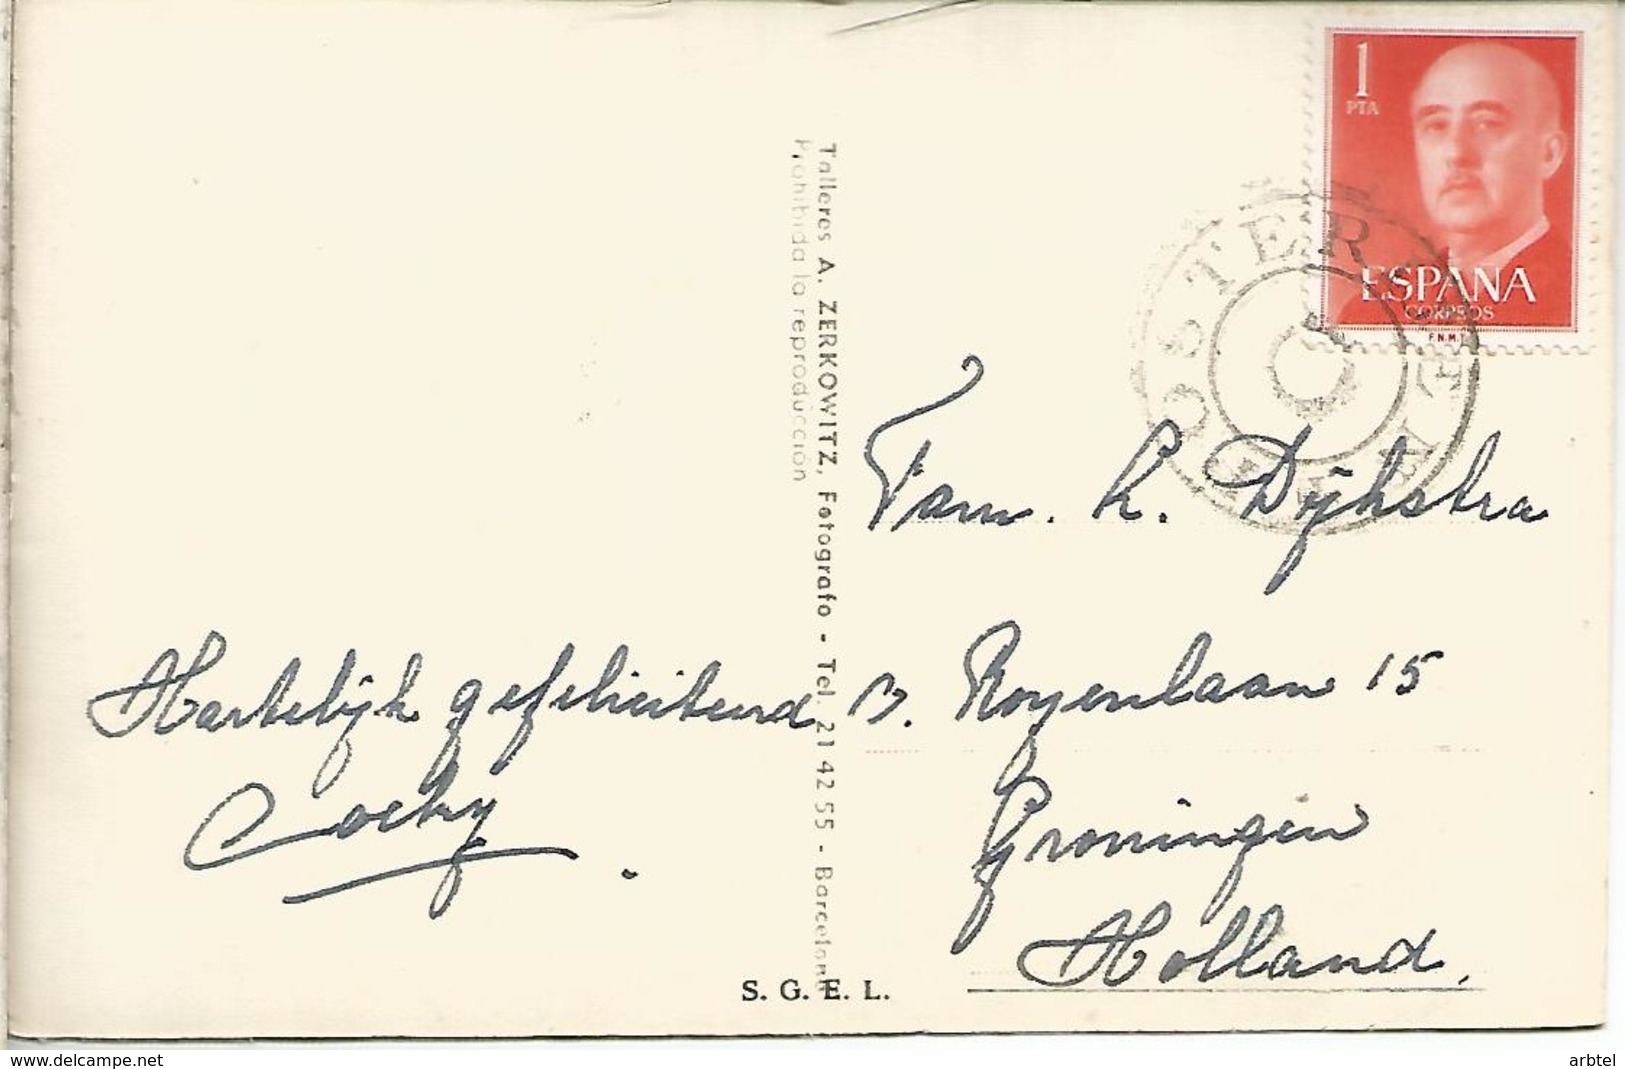 1
PTA
ESPAÑA
CORREOS
F.N.M.T.
Talleres A. ZERKOWITZ, Fotografo - Tel. 21 42 55 - Barcelona
Prohibida la reproducción
Fam. K. Dijkstra
v. Royenlaan 15
Groningen
Holland.
Hartelijk gefeliciteerd
Cocky
S. G. E. L.
arbtel
delcampe.net